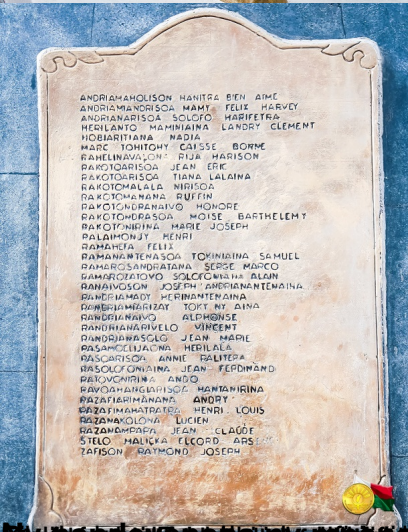 ANDRIAMAHOLISON HANITRA BIEN AIME
ANDRIAMIANDRISOA MAMY FELIX HARVEY
ANDRIANARISOA SOLOFO HARIFETRA
HERILANTO MAMINIAINA LANDRY CLEMENT
HOBIARITIANA NADIA
MARC TOHITOHY CAISSE BORNE
RIJA HARISON
RAKOTOARISOA JEAN ERIC
RAKOTOARISOA TIANA LALAINA
RAKOTOMALALA NIRISOA
RAKOTOMANANA RUFFIN
RAKOTONDRANAIVO HONORE
RAKOTONDRASOA MOISE BARTHELEMY
RAKOTONIRINA MARIE JOSEPH
RALAIMONJY HENRI
RAMAHEFA FELIX
RAMANANTENASOA TOKINIAINA SAMUEL
RAMAROSANDRATANA SERGE MARCO
RAMAROZATOVO SOLOFONIAINA ALAIN
RANAIVOSON JOSEPH ANDRIANANTENAINA
RANDRIAMADY HERINANTENAINA
RANDRIAMIARIZAY TOKY NY AINA
RANDRIANAIVO ALPHONSE
RANDRIANARIVELO VINCENT
RANDRIANASOLO JEAN MARIE
HERILALA
RASOARISOA ANNIE RALITERA
RASOLOFONIAINA JEAN FERDINAND
RATOVONIRINA ANDO
RAVOAHANGIARISOA HANTANIRINA
RAZAFIARIMANANA ANDRY
RAZAFIMAHATRATRA HENRI LOUIS
RAZANAKOLONA LUCIEN
RAZANAMPARA JEAN CLAUDE
STELO MALICKA ELCORD
ZAFISON RAYMOND JOSEPH